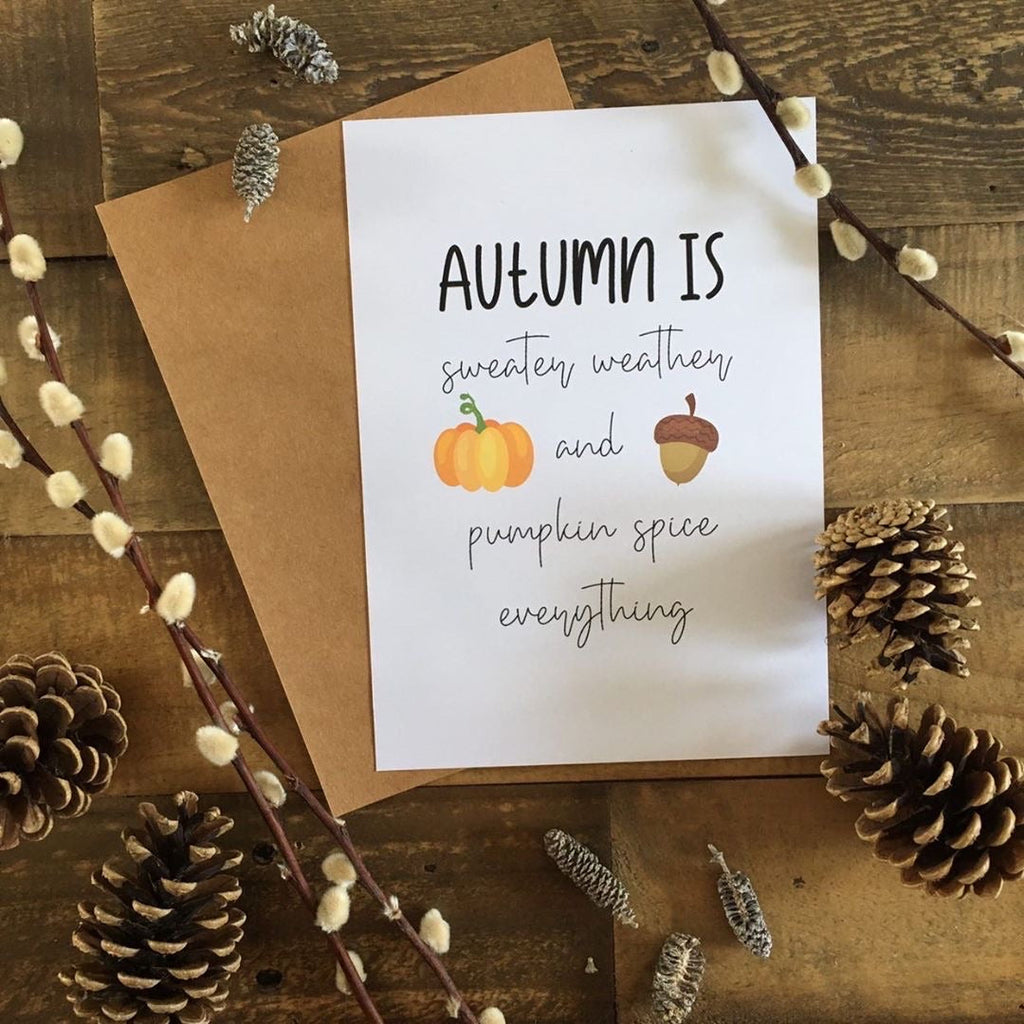 AUtUMN IS
sweater weather
and
pumpkin spice
everything